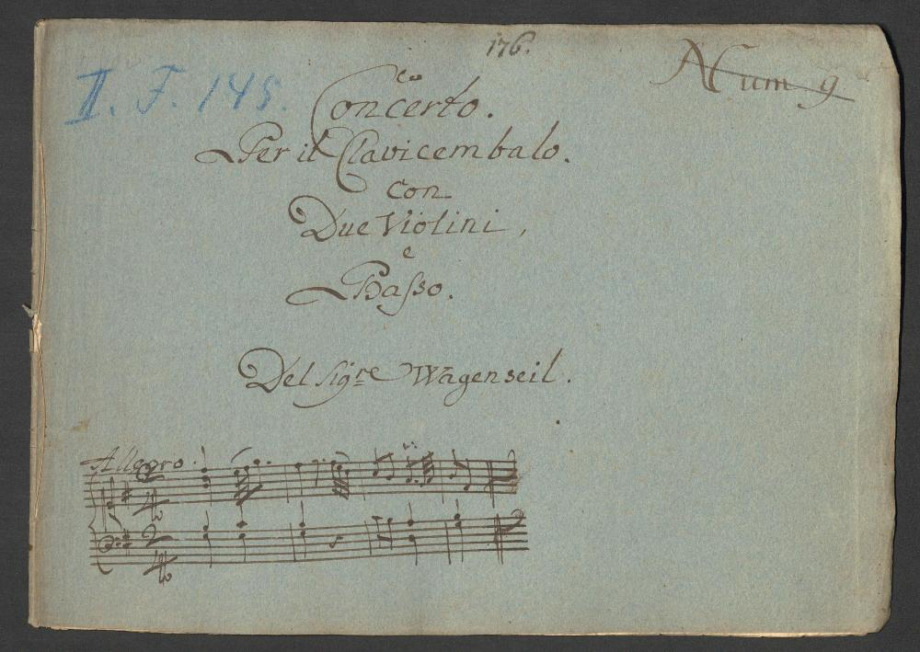 176.
II. F. 145.
Num 9
Concerto.
Per il Clavicembalo.
Con
Due Violini,
e
Basso.
Del Sigre Wagenseil.
Allegro.
2
4
2
4